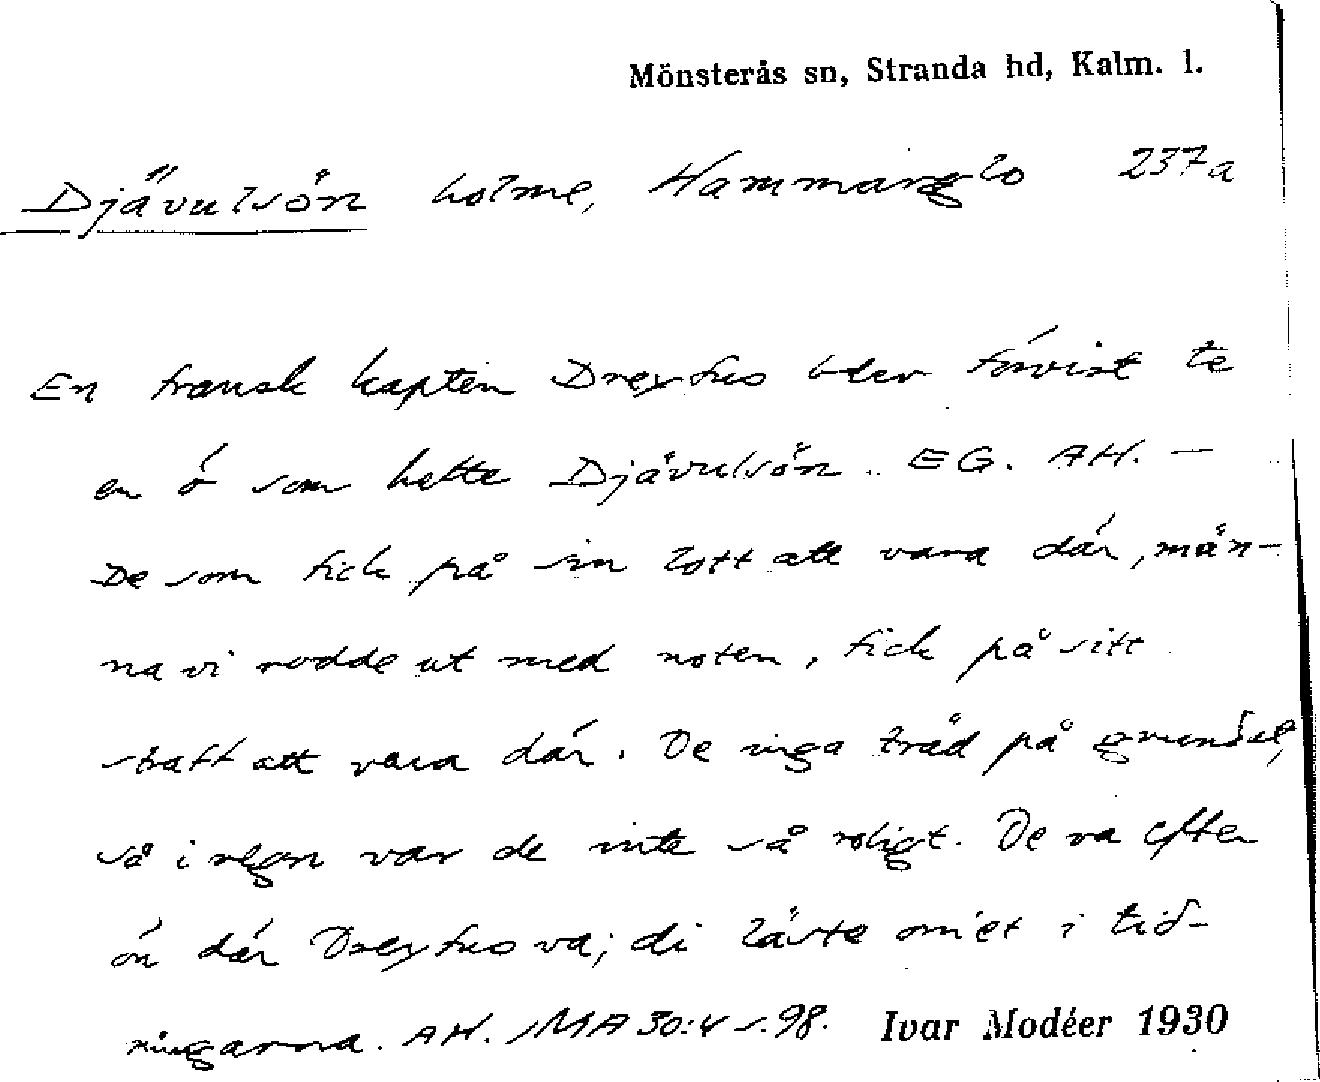 Mönsterås sn, Stranda hd, Kalm. l.
Djävulsön holme, Hammarglo 237a
En fransk kapten Dreyfus blev förvist te
en ö som hette Djävulsön. EG. AH. —
De som fick på sin lott att vara där, män-
na vi rodde ut med noten, fick på sitt
skaft att vara där. De inga träd på
så i regn var de inte så roligt. De va efter
ön där Dreyfus va; di läste om'et i tid-
ningarna. AH. MA 30:4 s. 98. Ivar Modéer 1930